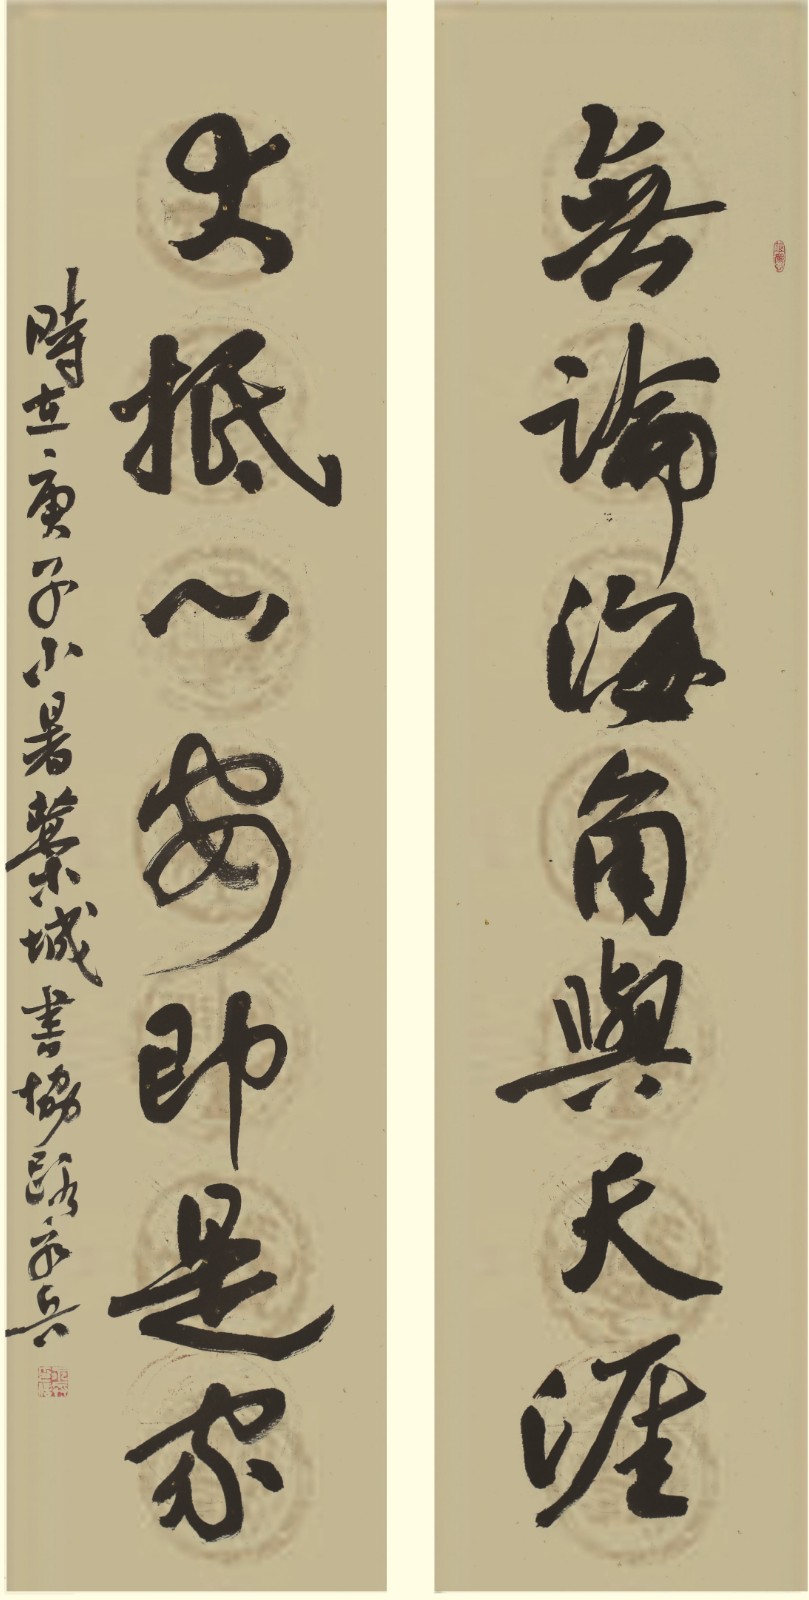 無論海角與天涯
大抵心安即是家
時在庚子小暑藁城書協路永兵